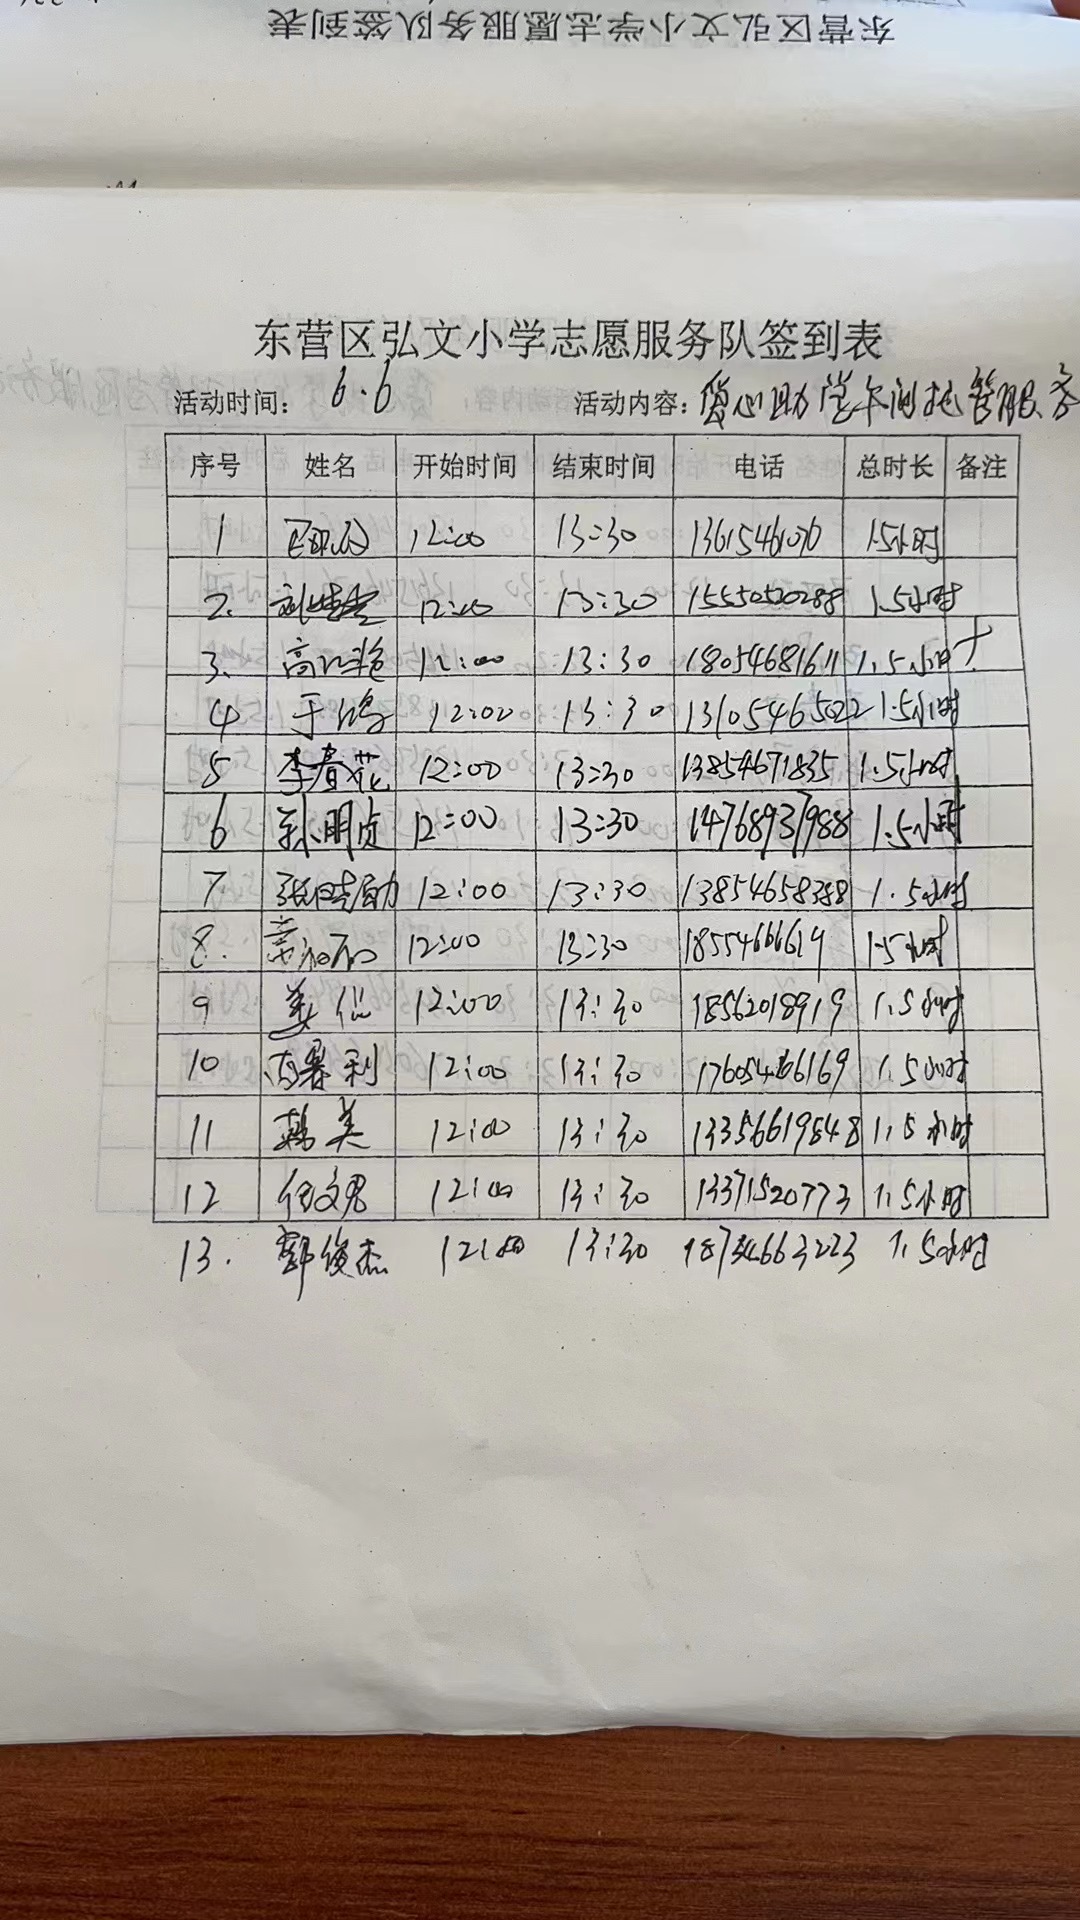 东营区弘文小学志愿服务队签到表
东营区弘文小学志愿服务队签到表
活动时间: 6.6 活动内容: 爱心助学午间托管服务
序号 姓名 开始时间 结束时间 电话 总时长 备注
1 12:00 13:30 1.5小时
2. 12:00 13:30 15550520288 1.5小时
3. 高江艳 12:00 13:30 18054681611 1.5小时
4 于鸿 12:00 13:30 13105465022 1.5小时
5 李春花 12:00 13:30 13854671835 1.5小时
6 孙明贞 12:00 13:30 14768937988 1.5小时
7 张晓勐 12:00 13:30 13854658388 1.5小时
8. 12:00 13:30 1.5小时
9 姜仙 12:00 13:30 18562018919 1.5小时
10 12:00 13:30 17605466169 1.5小时
11 韩美 12:00 13:30 13356619848 1.5小时
12 任文君 12:00 13:30 13371520773 1.5小时
13. 郭俊杰 12:00 13:30 18734663223 1.5小时